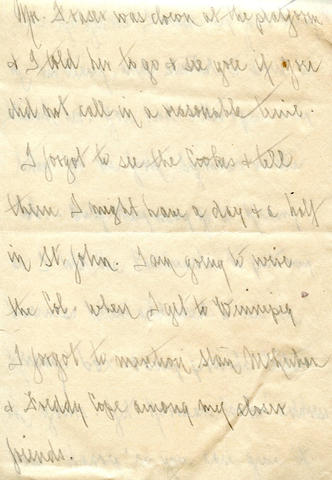 Mr. Fraser was down at the platform
& I told him to go & see you if you
did not call in a reasonable time.
I forgot to see the Cooke's & tell
them I might have a day & a half
in St. John. I am going to wire
the Col. when I get to Winnipeg
I forgot to mention Stan
& Freddy Cope among my closer
friends.